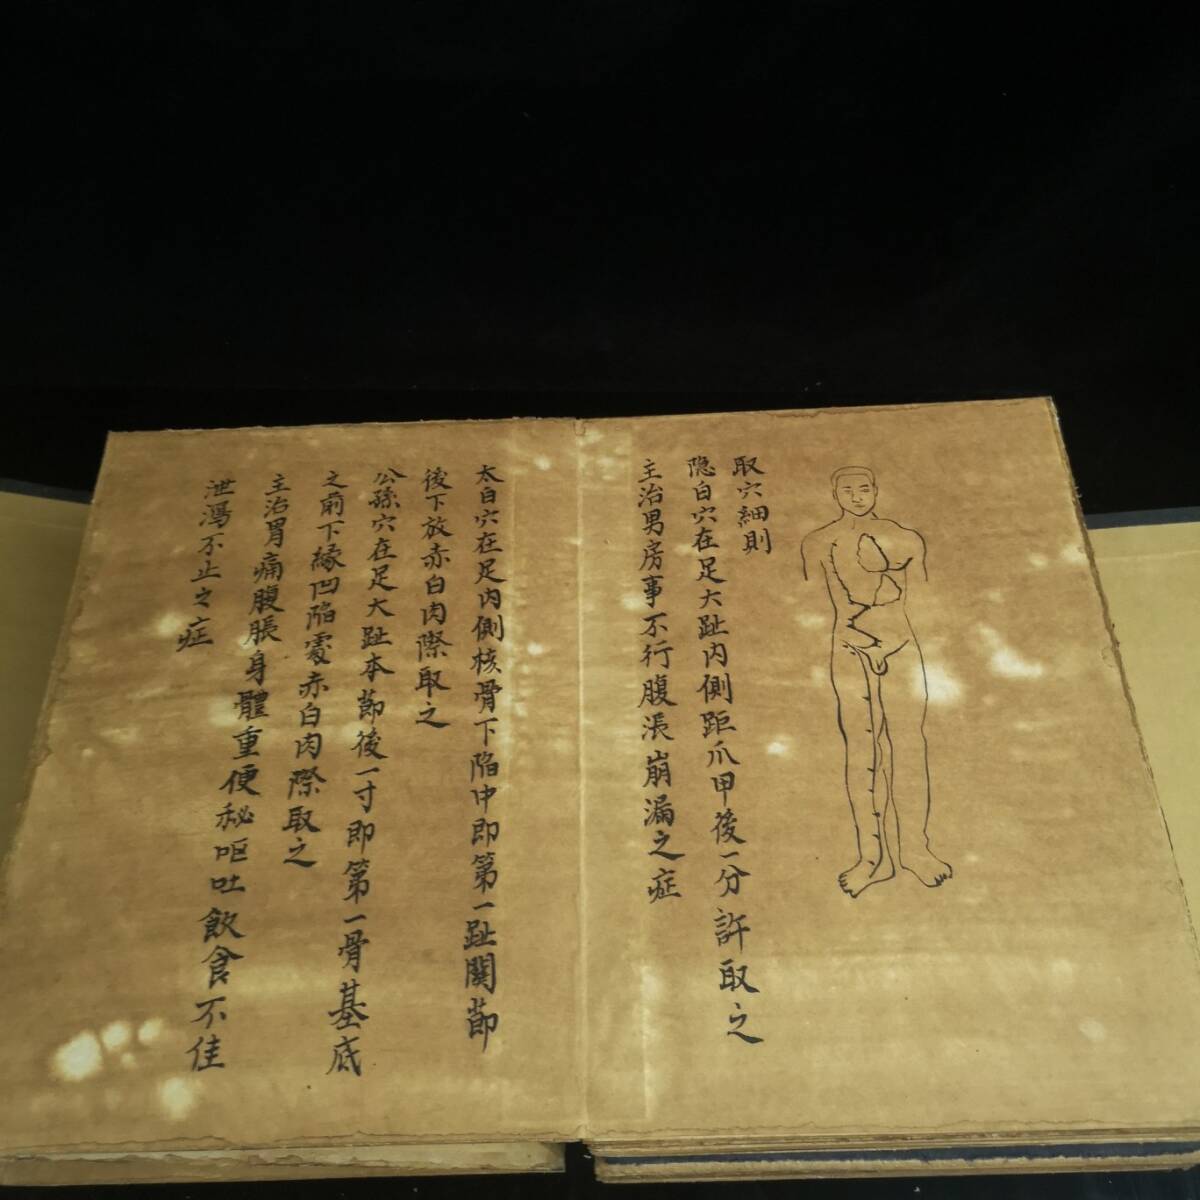 取穴細則
隐白穴在足大趾内側距爪甲後一分許取之
主治男房事不行腹漲崩漏之症
太白穴在足内側核骨下陷中即第一趾關節
後下放赤白肉際取之
公孫穴在足大趾本節後一寸即第一骨基底
之前下緣凹陷處赤白肉際取之
主治胃痛腹脹身體重便秘嘔吐飲食不佳
泄瀉不止之症